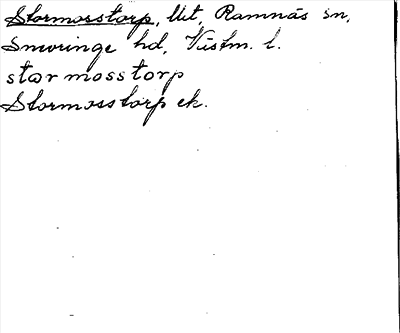 Stormosstorp, Ut, Ramnäs sn,
Snevringe hd, Västm. l.
stormosstorp
Stormosstorp ek.